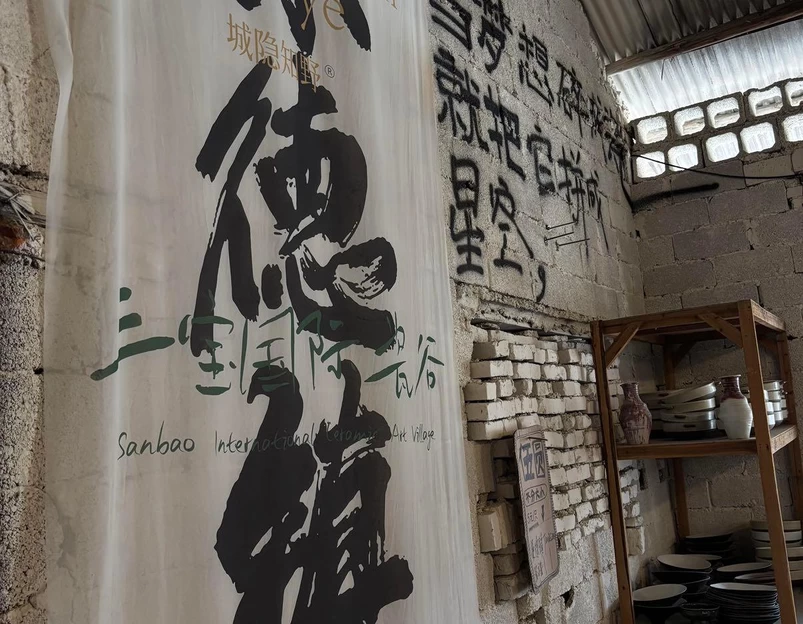 ye
城隐知野®
德
镇
三宝国际瓷谷
Sanbao International Ceramic Art Village
当梦想碎
就把它拼成
星空，